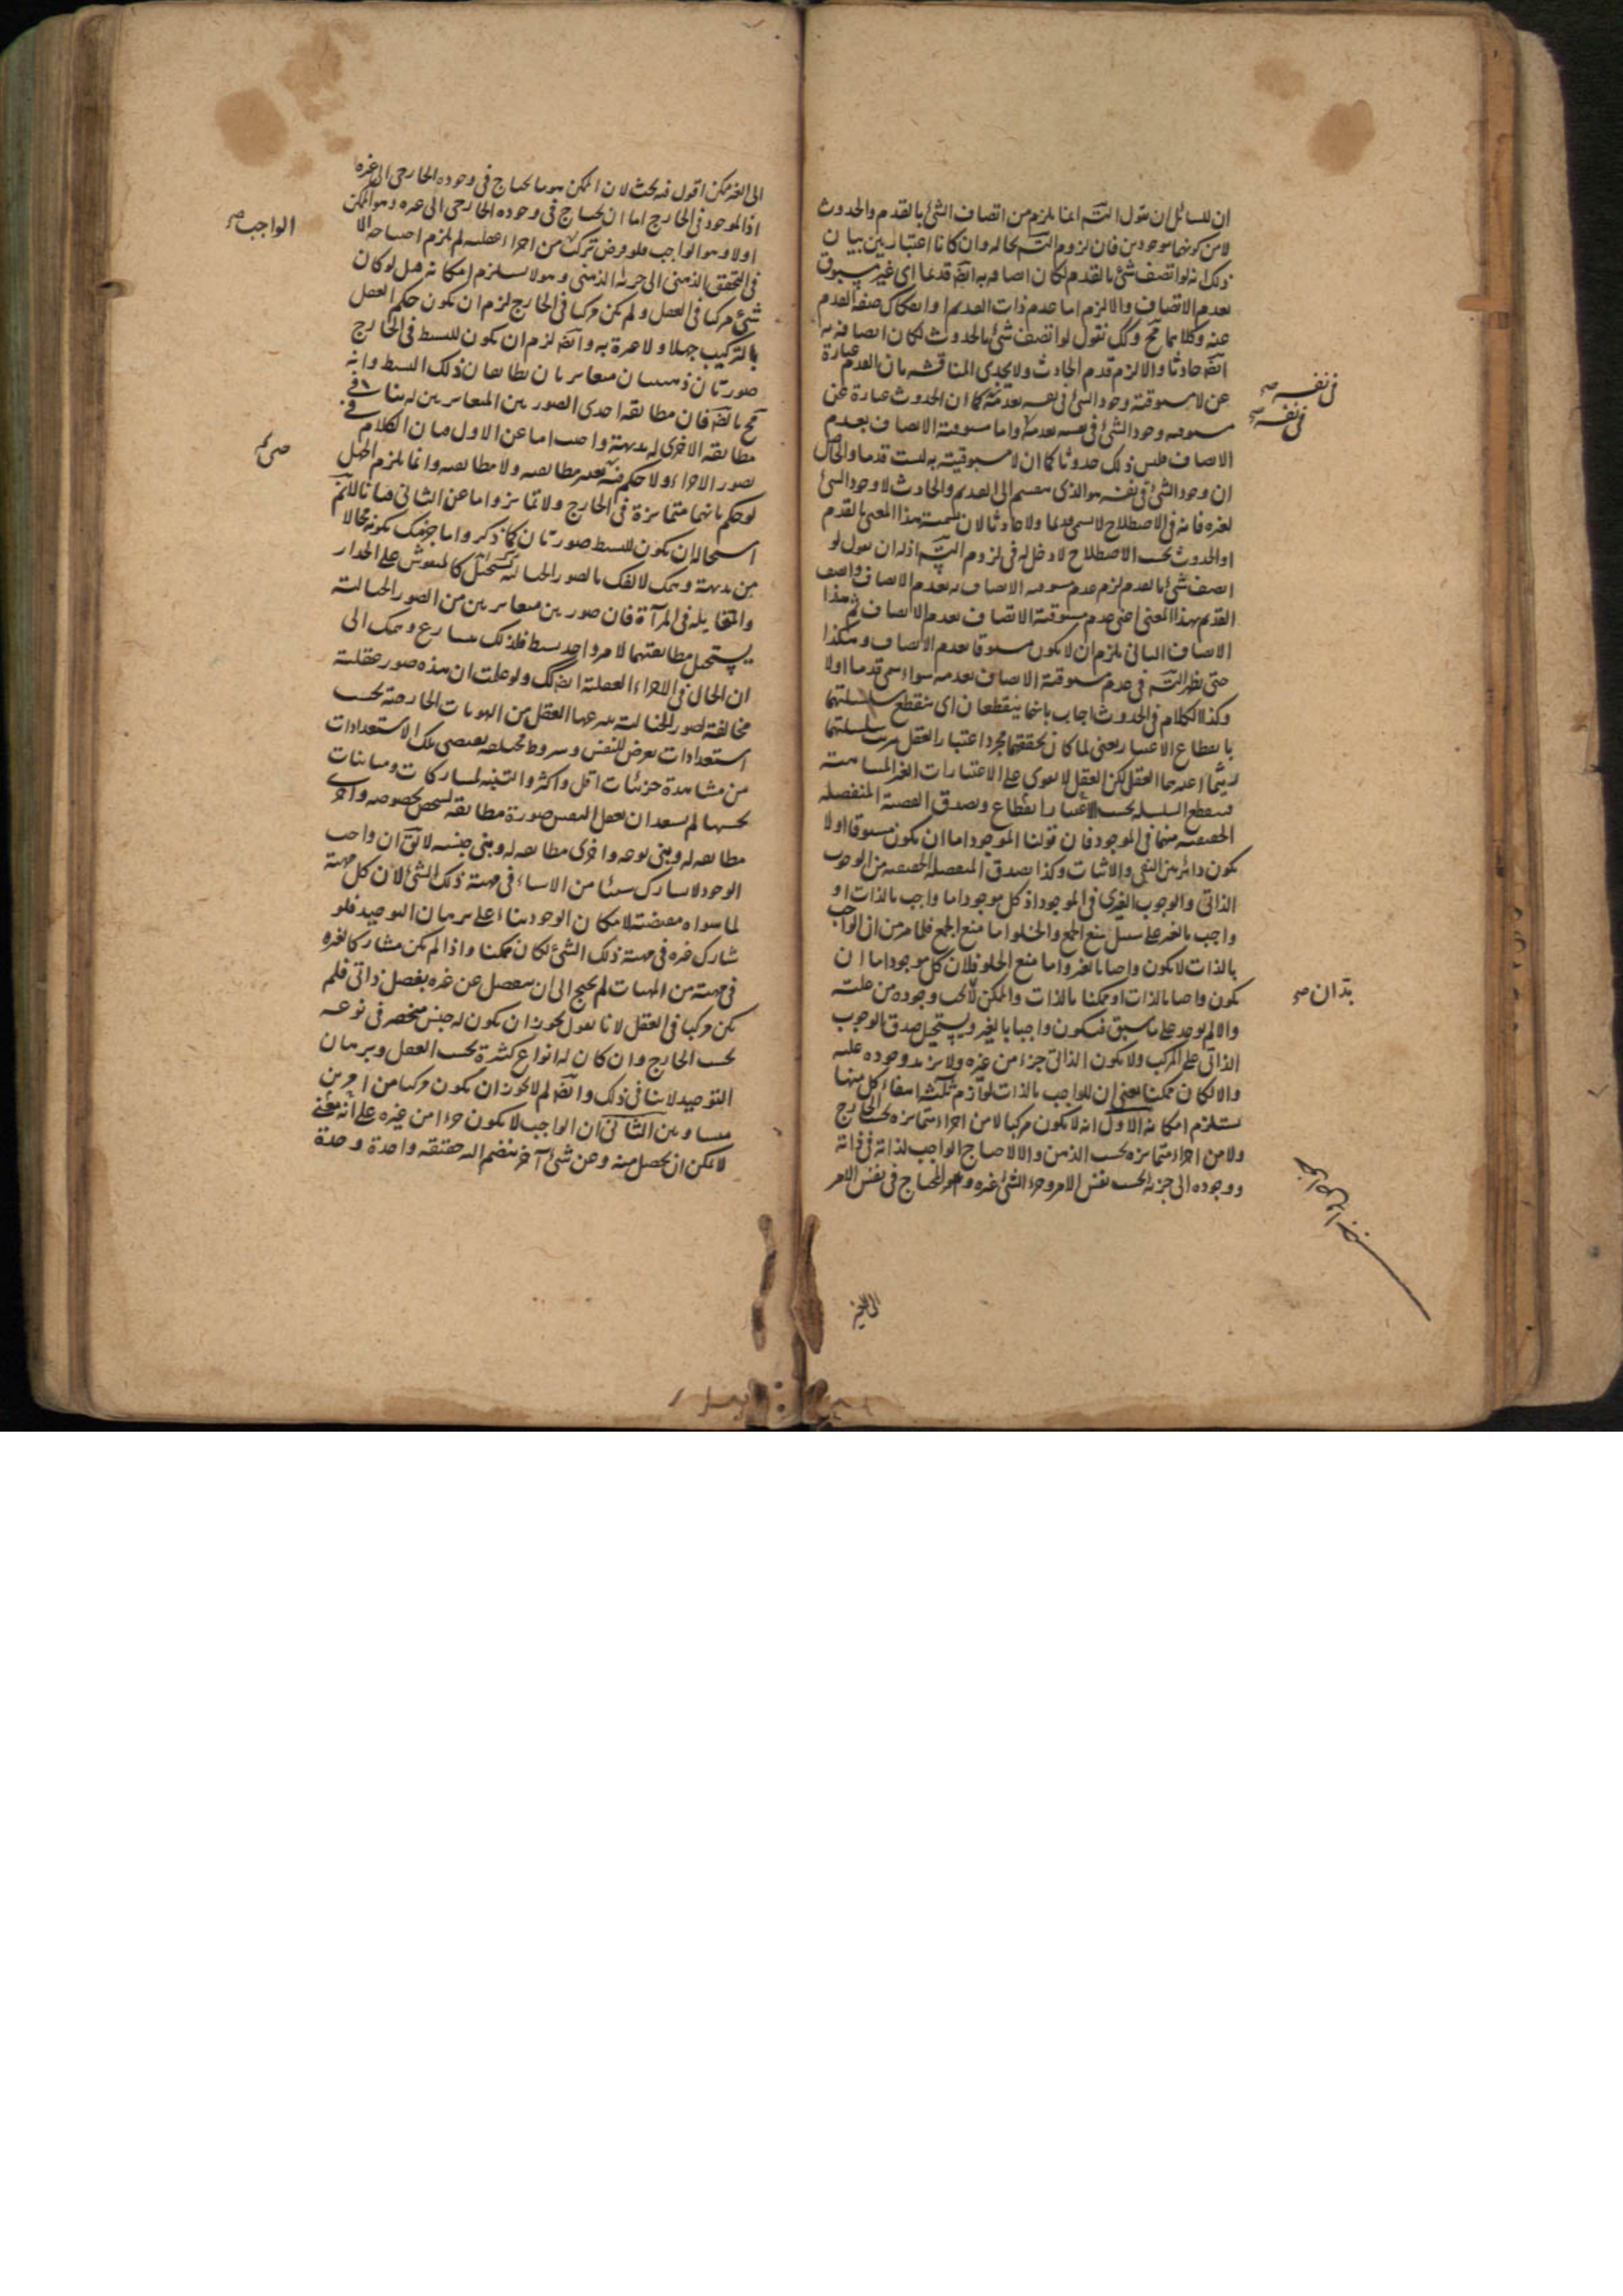 ان للسائل ان يقول التسـ انما يلزم من اتصاف الشئ بالقدم والحدوث
لا من كونهما موجودين فان لزوم التسـ بحاله وان كانا اعتباريين بيان
ذلك انه لو اتصف شئ بالقدم لكان اتصافه به ايضا قديما اى غير مسبوق
بعدم الاتصاف والا لزم اما عدم ذات القديم او انفكاك صفة القدم
عنه وكلاهما مح وكك نقول لو اتصف شئ بالحدوث لكان اتصافه به
ايضا حادثا والا لزم قدم الحادث ولا يجدى المناقشة بان القدم عبارة
عن لا مسبوقية وجود الشئ فى نفسه بعدمه كما ان الحدوث عبارة عن
مسبوقية وجود الشئ فى نفسه بعدمه واما مسبوقية الاتصاف بعدم
الاتصاف فليس ذلك حدوثا كما ان لا مسبوقيته به ليست قدما والحاصل
ان وجود الشئ فى نفسه هو الذى ينقسم الى القديم والحادث لا وجود الشئ
لغيره فانه فى الاصطلاح لا يسمى قديما ولا حادثا لان تسمية هذا المعنى بالقدم
او الحدوث بحسب الاصطلاح لا دخل له فى لزوم التسـ اذ له ان يقول لو
اتصف شئ بالقدم لزم عدم مسبوقية الاتصاف به بعدم الاتصاف واتصف
القديم بهذا المعنى اعنى عدم مسبوقية الاتصاف بعدم الاتصاف ثم هذا
الاتصاف الثانى يلزم ان لا يكون مسبوقا بعدم الاتصاف وهكذا
حتى يظهر التسـ فى عدم مسبوقية الاتصاف بعدمه سواء سمى قدما او لا
وكذا الكلام فى الحدوث اجاب بانهما ينقطعان اى ينقطع سلسلتهما
بانقطاع الاعتبار يعنى لما كان تحققهما مجرد اعتبار العقل ترتب سلسلتهما
ريثما اعتبرهما العقل لكن العقل لا يقوى على الاعتبارات الغير المتناهية
فينقطع السلسلة بحسب الاعتبار انقطاع وتصدق القضية المنفصلة
الحقيقية منهما فى الموجود فان قولنا الموجود اما ان يكون مسبوقا او لا
يكون دائر بين النفى والاثبات وكذا تصدق المنفصلة الحقيقية من الوجوب
الذاتى والوجوب الغيرى فى الموجود اذ كل موجود اما واجب بالذات او
واجب بالغير على سبيل منع الجمع والخلو اما منع الجمع فلما مر من ان الواجب
بالذات لا يكون واجبا بالغير واما منع الخلو فلان كل موجود اما ان
يكون واجبا بالذات او ممكنا بالذات والممكن يجب وجوده من علته
والا لم يوجد على ما سبق فيكون واجبا بالغير ويستحيل صدق الوجوب
الذاتى على المركب ولا يكون الذاتى جزءا من غيره ولا يزيد وجوده عليه
والا لكان ممكنا يعنى ان للواجب بالذات لوازم ثلثة انتفاء كل منها
يستلزم امكانه الاول انه لا يكون مركبا لا من اجزاء متمايزة بحسب الخارج
ولا من اجزاء متمايزة بحسب الذهن والا لاحتاج الواجب لذاته فى ذاته
ووجوده الى جزئه بحسب نفس الامر وجزء الشئ غيره والمحتاج فى نفس الامر
فى نفسه صح
فى نفسه صح
بد ان صح
الى الغير
الى الغير ممكن اقول فيه بحث لان الممكن هو ما يحتاج فى وجوده الخارجى الى غيره
اذ الموجود فى الخارج اما ان يحتاج فى وجوده الخارجى الى غيره وهو الممكن
اولا وهو الواجب فلو فرض تركب من اجزاء عقلية لم يلزم احتياجه الا
فى التحقق الذهنى الى جزئه الذهنى وهو لا يستلزم امكانه قيل لو كان
شئ مركبا فى العقل ولم يكن مركبا فى الخارج لزم ان يكون حكم العقل
بالتركيب جهلا ولا عبرة به وايضا لزم ان يكون للبسيط فى الخارج
صورتان ذهنيتان متغايرتان يطابقان ذلك البسيط وانه
مح بالضـ فان مطابقة احدى الصورتين المتغايرتين له ينافى
مطابقة الاخرى له بديهة واجيب اما عن الاول فبان الكلام فى
تصور الاجزاء ولا حكم فيه يعتبر مطابقته ولا مطابقته وانما يلزم الجهل
لو حكم بانهما متمايزة فى الخارج ولا تمايز واما عن الثانى فبانا لا نم
استحالة ان يكون للبسيط صورتان كما ذكر واما جزمك بكونه محالا
من بديهة وهمك لالفك بالصور الخيالية كالمنقوش على الجدار
والمتخايلة فى المرآة فان صورتين متغايرتين من الصور الخيالية
يستحيل مطابقتهما لامر واحد بسيط فلذلك يسارع وهمك الى
ان الحال فى الاجزاء العقلية ايضا كك ولو علمت ان هذه صور عقلية
مخالفة لصور الخيالية ينتزعها العقل من الهويات الخارجية بحسب
استعدادات تعرض للنفس وشروط مختلفة يقتضى تلك الاستعدادات
من مشاهدة جزئيات اقل واكثر والتنبه لمشاركات ومباينات
بحسبها لم يستبعد ان تعقل النفس صورة مطابقة لشخص بخصوصه واخرى
مطابقة له وبنى نوعه واخرى مطابقة له وبنى جنسه لا يق ان واجب
الوجود لا يشارك شيئا من الاشياء فى مهية ذلك الشئ لان كل مهية
لما سواه مقتضية لامكان الوجود بناء على برهان التوحيد فلو
شارك غيره فى مهية ذلك الشئ لكان ممكنا واذا لم يكن مشاركا لغيره
فى مهية من المهيات لم يحتج الى ان ينفصل عن غيره بفصل ذاتى فلم
يكن مركبا فى العقل لانا نقول يجوز ان يكون له جنس منحصر فى نوعه
بحسب الخارج وان كان له انواع كثيرة بحسب العقل وبرهان
التوحيد لا ينافى ذلك وايضا لم لا يجوز ان يكون مركبا من امرين
متساويين الثانى ان الواجب لا يكون جزءا من غيره على انه يعنى
لا يمكن ان يحصل منه وعن شئ آخر ينضم اليه حقيقة واحدة وحدة
الواجب صح